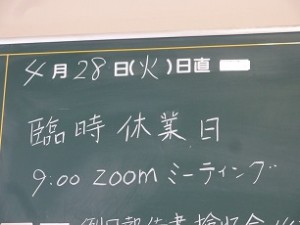 4月28日(火)日直
臨時休業日
9:00 zoomミーティング